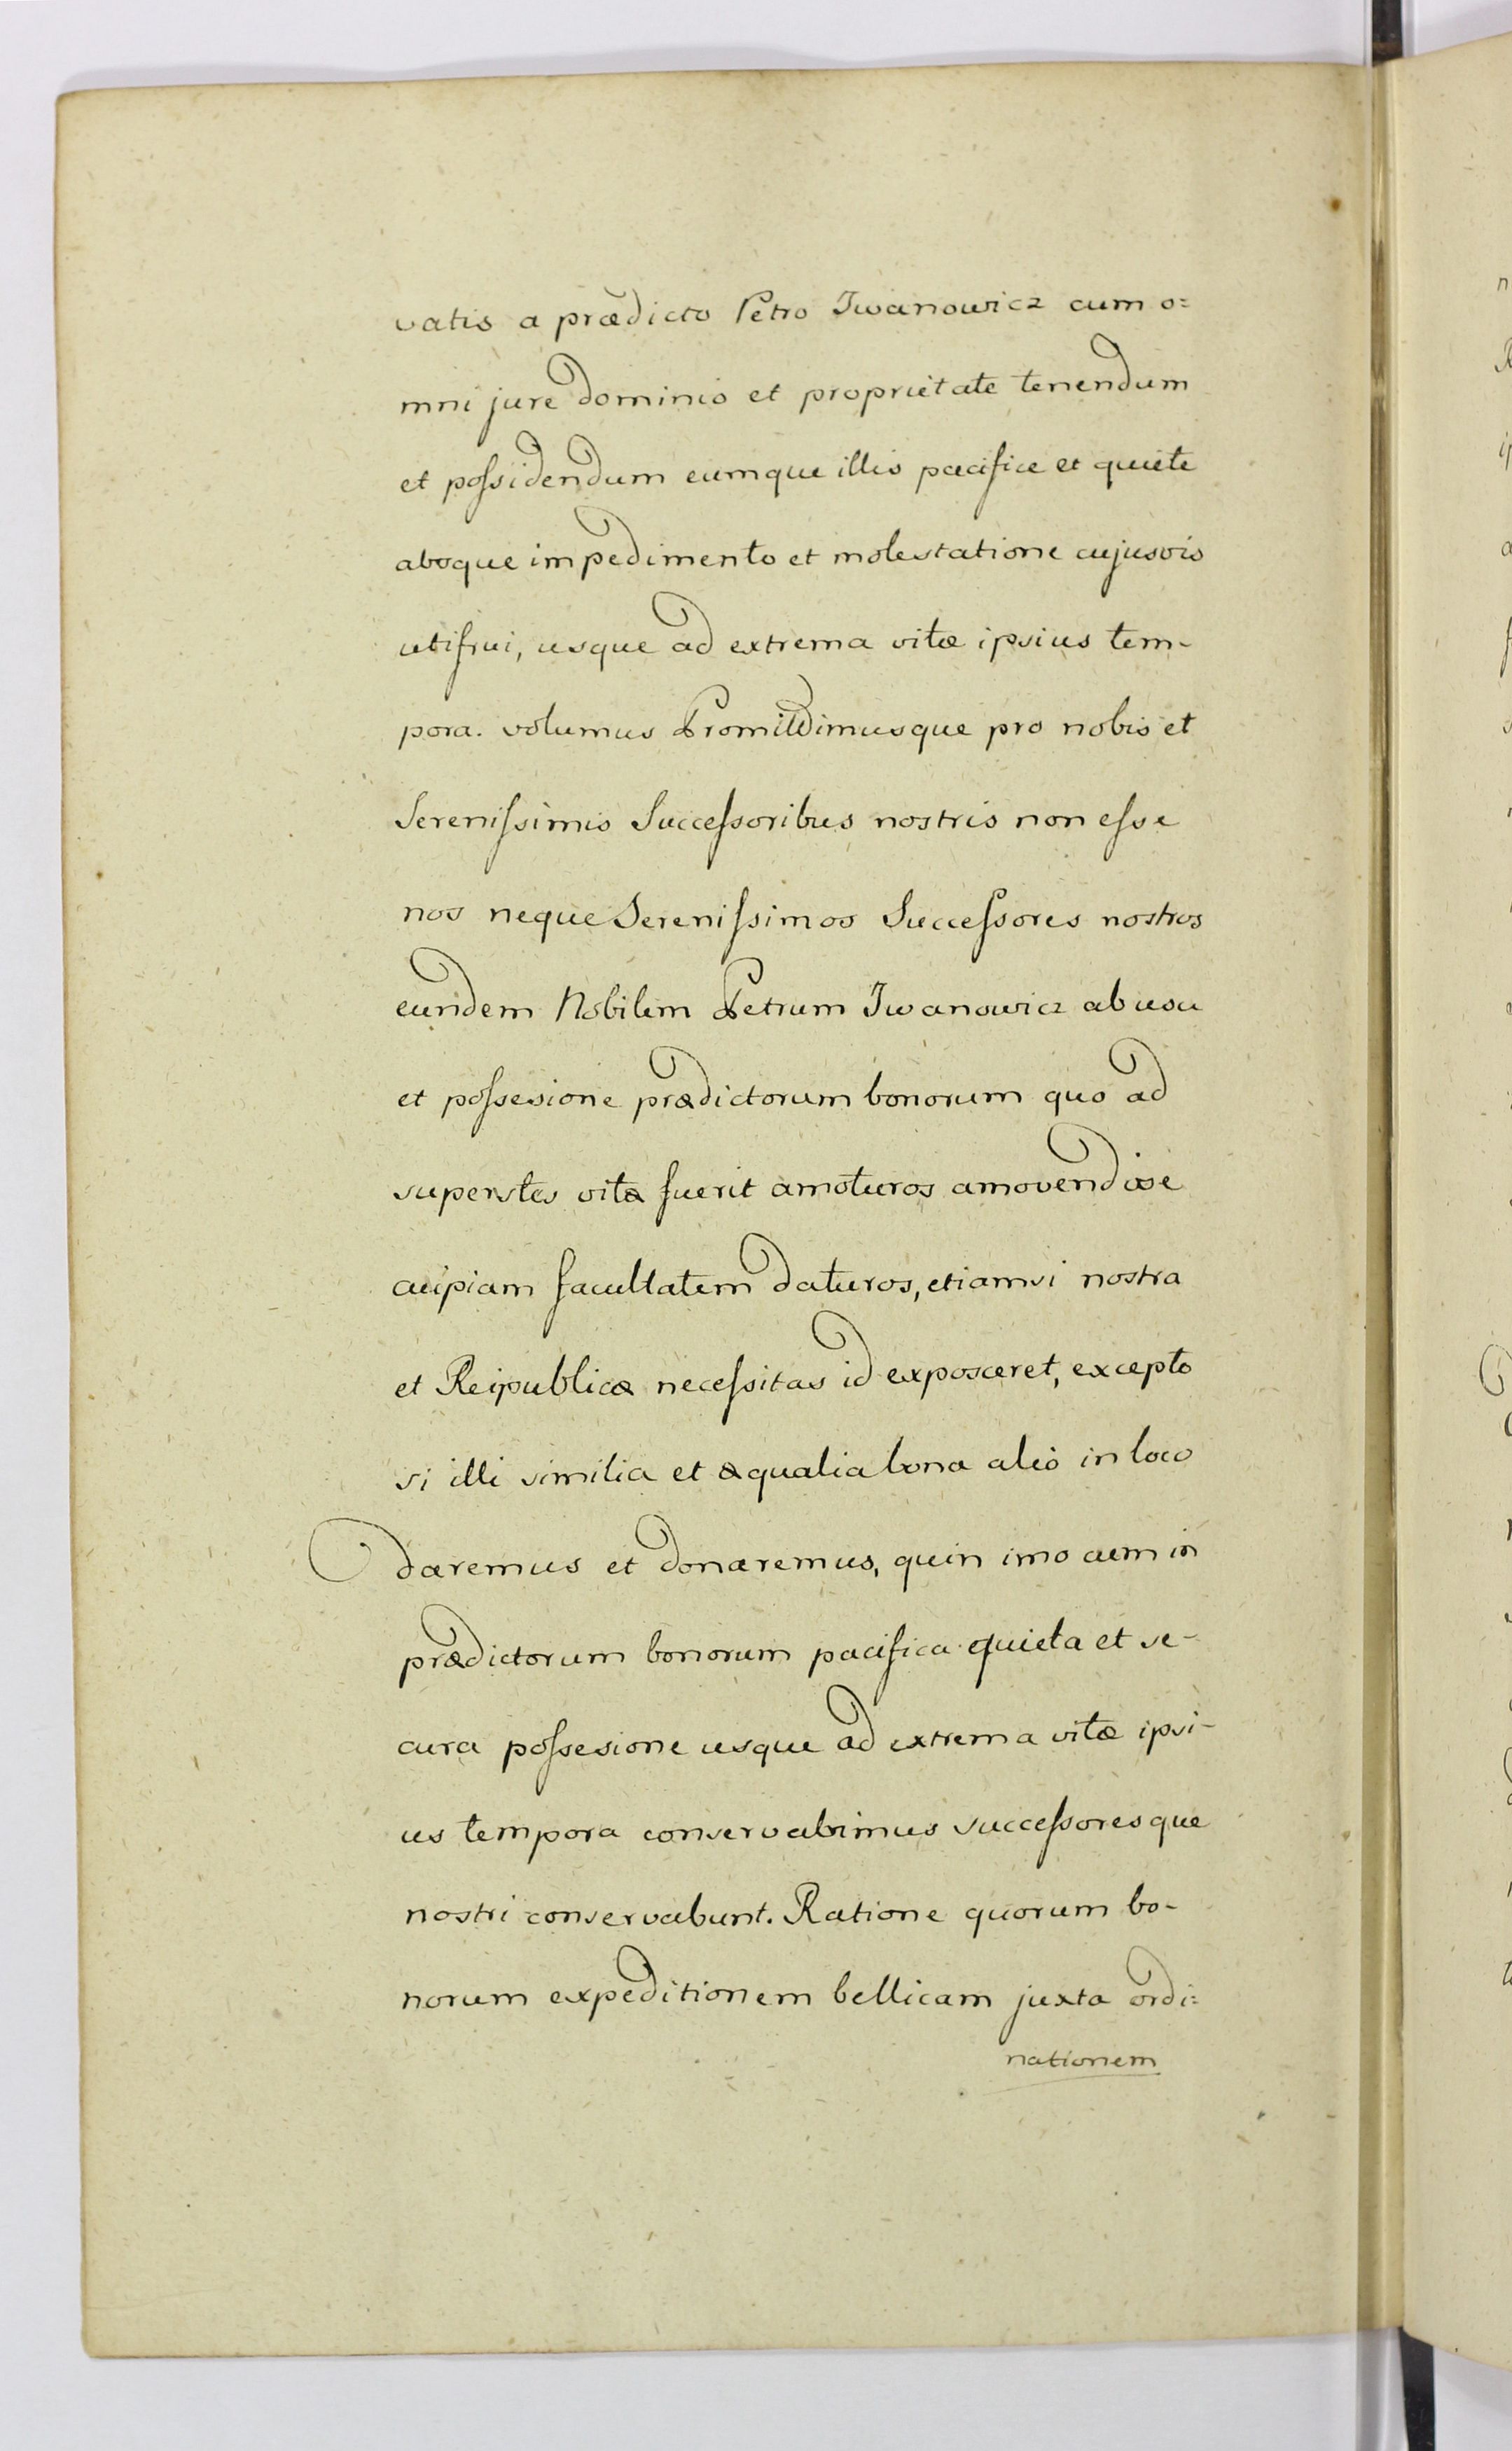 vatis a prædicto Petro Iwanowicz cum o=
mni jure dominio et proprietate tenendum
et possidendum eumque illis pacifice et quiete
absque impedimento et molestatione cujusvis
utifrui, usque ad extrema vitæ ipsius tem-
pora. volumus Promittimusque pro nobis et
Serenissimis Successoribus nostris non esse
nos neque Serenissimos Successores nostros
eundem Nobilem Petrum Iwanowicz ab usu
et possesione prædictorum bonorum quo ad
superstes vitæ fuerit amoturos amovendive
cuipiam facultatem daturos, etiamsi nostra
et Reipublicæ necessitas id exposceret, excepto
si illi similia et æqualia bona alio in loco
daremus et donaremus, quin imo eum in
prædictorum bonorum pacifica quieta et se-
cura possesione usque ad extrema vitæ ipsi-
us tempora conservabimus successoresque
nostri conservabunt. Ratione quorum bo-
norum expeditionem bellicam juxta ordi=
nationem